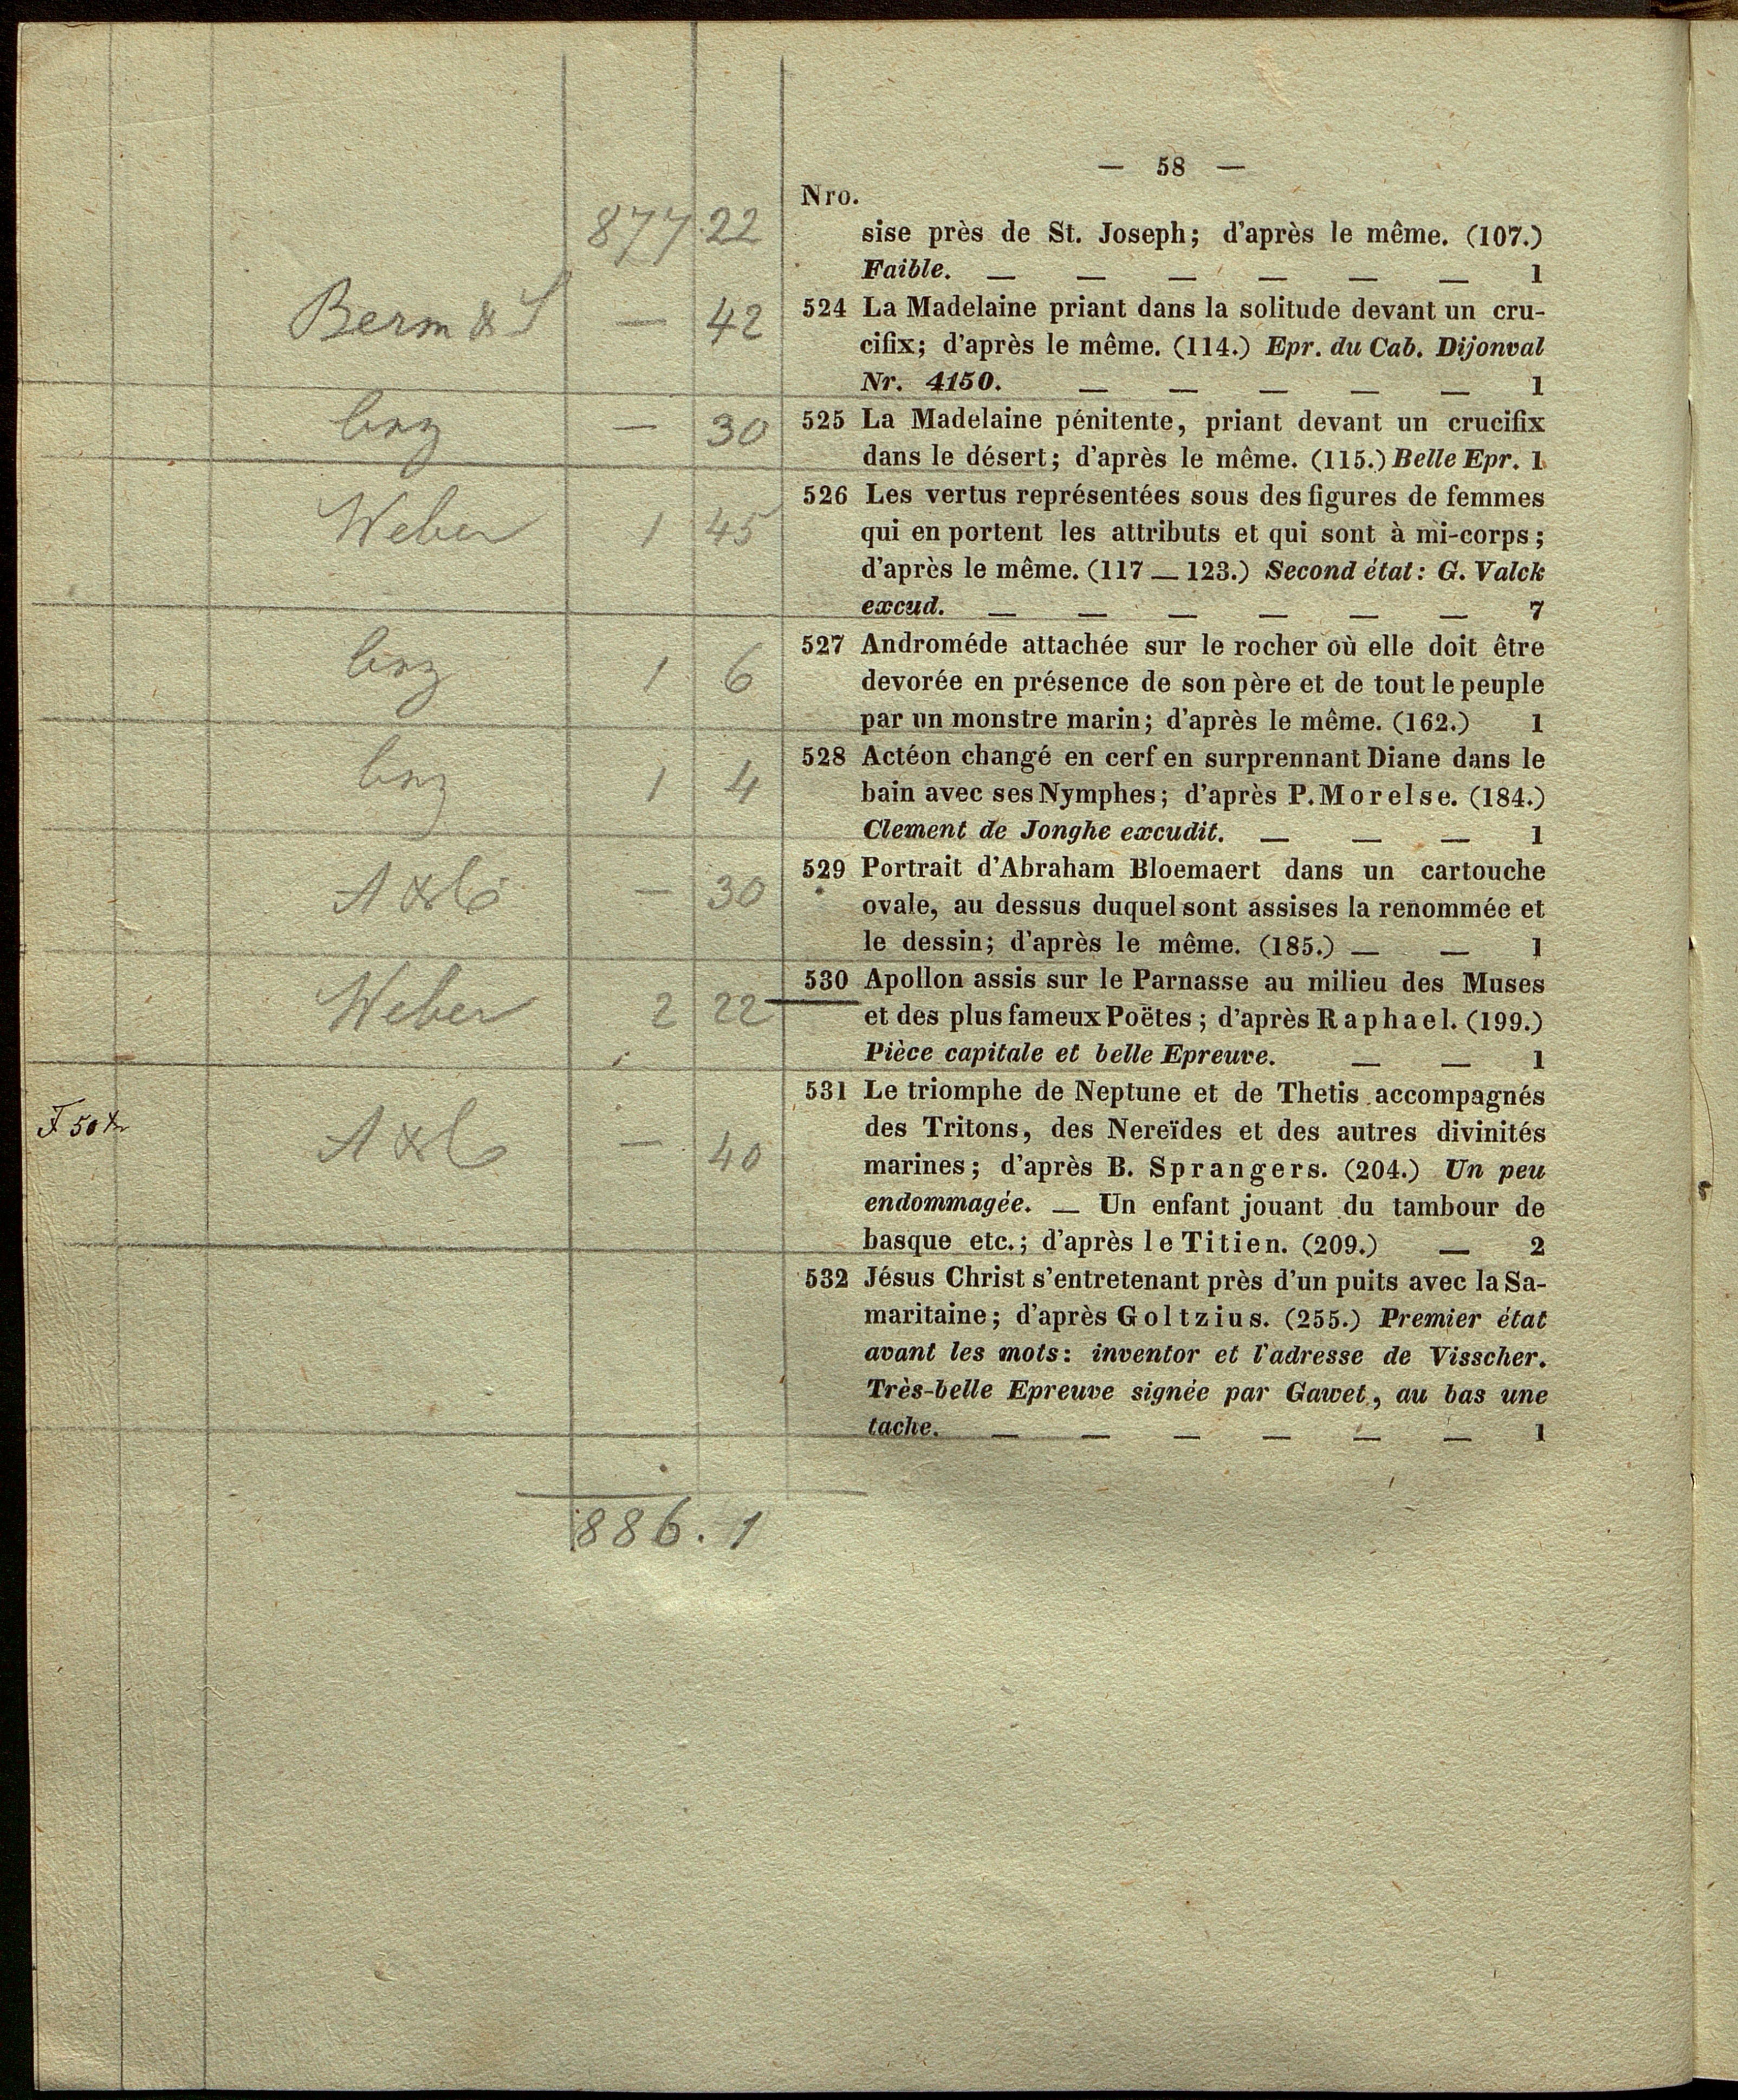 — 58 —
Nro.
877.22
sise près de St. Joseph; d'après le même. (107.)
Faible. — — — — — — 1
Berm & S — 42
524 La Madelaine priant dans la solitude devant un cru-
cifix; d'après le même. (114.) Epr. du Cab. Dijonval
Nr. 4150. — — — — — 1
— 30
525 La Madelaine pénitente, priant devant un crucifix
dans le désert; d'après le même. (115.) Belle Epr. 1
Weber 1 45
526 Les vertus représentées sous des figures de femmes
qui en portent les attributs et qui sont à mi-corps;
d'après le même. (117 — 123.) Second état: G. Valck
excud. — — — — — — 7
1 6
527 Androméde attachée sur le rocher où elle doit être
devorée en présence de son père et de tout le peuple
par un monstre marin; d'après le même. (162.) 1
1 4
528 Actéon changé en cerf en surprennant Diane dans le
bain avec ses Nymphes; d'après P. Morelse. (184.)
Clement de Jonghe excudit. — — — 1
— 30
529 Portrait d'Abraham Bloemaert dans un cartouche
ovale, au dessus duquel sont assises la renommée et
le dessin; d'après le même. (185.) — — 1
Weber 2 22
530 Apollon assis sur le Parnasse au milieu des Muses
et des plus fameux Poëtes; d'après Raphael. (199.)
Pièce capitale et belle Epreuve. — — 1
— 40
531 Le triomphe de Neptune et de Thetis accompagnés
des Tritons, des Nereïdes et des autres divinités
marines; d'après B. Sprangers. (204.) Un peu
endommagée. — Un enfant jouant du tambour de
basque etc.; d'après le Titien. (209.) — 2
532 Jésus Christ s'entretenant près d'un puits avec la Sa-
maritaine; d'après Goltzius. (255.) Premier état
avant les mots: inventor et l'adresse de Visscher.
Très-belle Epreuve signée par Gawet, au bas une
tache. — — — — — — 1
886. 1